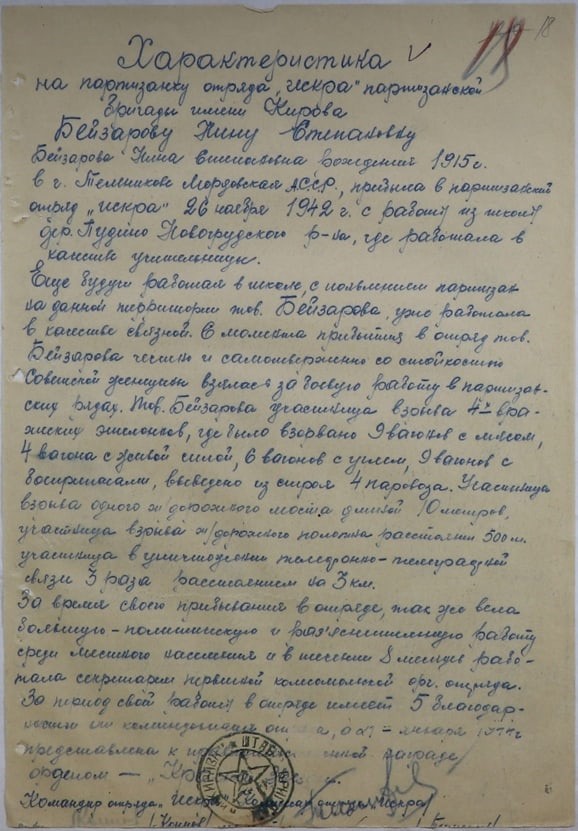 18
Характеристика
на партизанку отряда "Искра" партизанской
бригады имени Кирова
Бейзарову Нину Степановну
Бейзарова Нина Степановна рождения 1915 г.
в г. Темников Мордовская АССР, прибыла в партизанский
отряд "Искра" 26 ноября 1942 г. с работы из школы
дер. Пудино Новогрудского р-на, где работала в
качестве учительницы.
Еще будучи работая в школе, с появлением партизан
на данной территории тов. Бейзарова, уже работала
в качестве связной. С момента прибытия в отряд тов.
Бейзарова честно и самоотверженно со стойкостью
Советской женщины взялась за боевую работу в партизан-
ских рядах. Тов. Бейзарова участница взрыва 4х вра-
жеских эшелонов, где было взорвано 9 вагонов с мясом,
4 вагона с живой силой, 6 вагонов с углем, 9 вагонов с
боеприпасами, выведено из строя 4 паровоза. Участница
взрыва одного ж/дорожного моста длиной 10 метров,
участница взрыва ж/дорожного полотна расстоянием 500 м.
участница в уничтожении телефонно-телеграфной
связи 3 раза расстоянием на 3 км.
За время своего прибывания в отряде, так же вела
большую-политическую и раз'яснительную работу
среди местного населения и в течении 8 месяцев рабо-
тала секретарем первичной комсомольской орг. отряда.
За период свой работы в отряде имеет 5 благодар-
ностей от командования отряда, а в - январе 1944 г
представлена к награде
орденом —
Командир отряда "Искра" отряда "Искра"